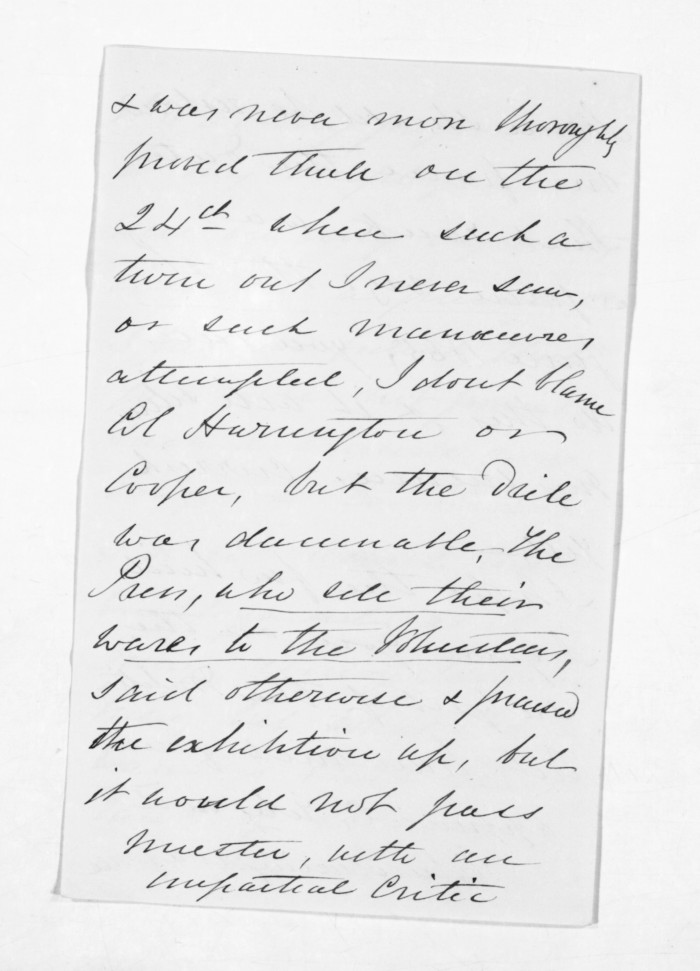 & was never more thoroughly
proved than on the
24th when such a
turn out I never saw,
or such manœuvres
attempted, I dont blame
Col Harrington or
Cooper, but the Drill
was damnable, The
Press, who sell their
wares to the Volunteers,
said otherwise & praised
the exhibition up, but
it would not pass
muster, with an
impartial Critic